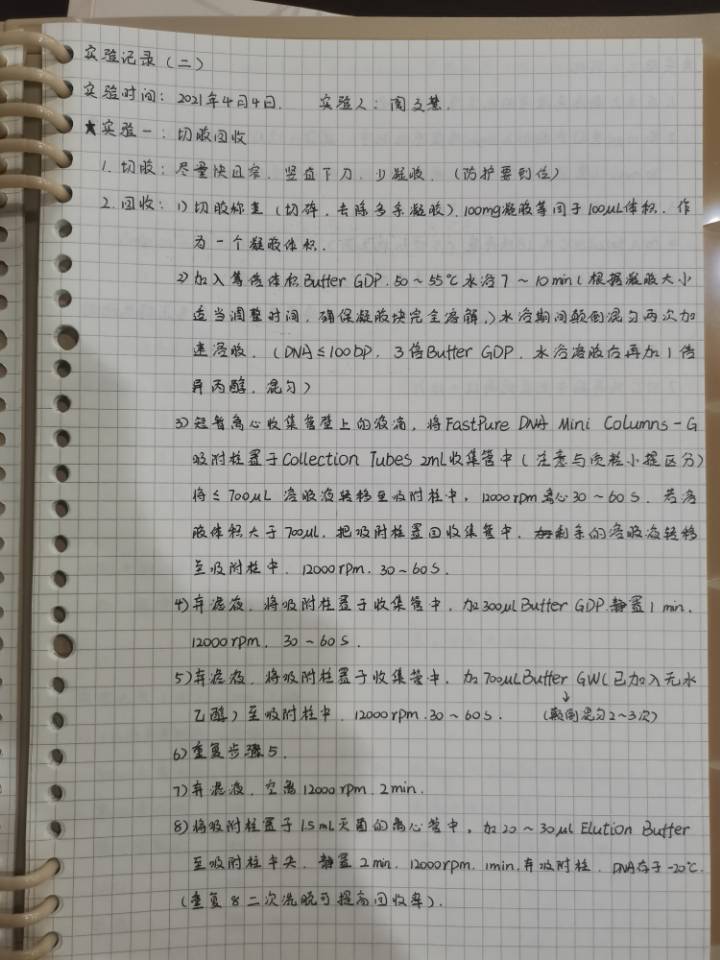 实验记录（二）
实验时间：2021年4月4日. 实验人：周文慧.
★实验一：切胶回收
1. 切胶：尽量快且窄, 竖直下刀, 少碰胶.（防护要到位）
2. 回收：1) 切胶称重（切碎, 去除多余凝胶), 100mg凝胶等同于100μL体积, 作
为一个凝胶体积.
2) 加入等倍体积Buffer GDP. 50~55℃水浴7~10min（根据凝胶大小
适当调整时间, 确保凝胶块完全溶解.）水浴期间颠倒混匀两次加
速溶胶.（DNA≤100bp, 3倍Buffer GDP, 水浴溶胶后再加1倍
异丙醇, 混匀）
3) 短暂离心收集管壁上的液滴, 将FastPure DNA Mini Columns-G
吸附柱置于Collection Tubes 2ml收集管中（注意与质粒小提区分）
将≤700μL 溶胶液转移至吸附柱中, 12000rpm离心30~60s. 若溶
胶体积大于700μL, 把吸附柱置回收集管中, 剩余的溶胶液转移
至吸附柱中, 12000rpm. 30~60s.
4) 弃滤液, 将吸附柱置于收集管中, 加300μL Buffer GDP. 静置1min.
12000rpm. 30~60s.
5) 弃滤液, 将吸附柱置于收集管中, 加700μL Buffer GW（已加入无水
乙醇）至吸附柱中, 12000rpm. 30~60s. ↓（颠倒混匀2~3次）
6) 重复步骤5.
7) 弃滤液, 空离12000rpm 2min.
8) 将吸附柱置于1.5mL灭菌的离心管中, 加20~30μL Elution Buffer
至吸附柱中央, 静置2min. 12000rpm. 1min. 弃吸附柱. DNA存于-20℃.
（重复8二次洗脱可提高回收率）.